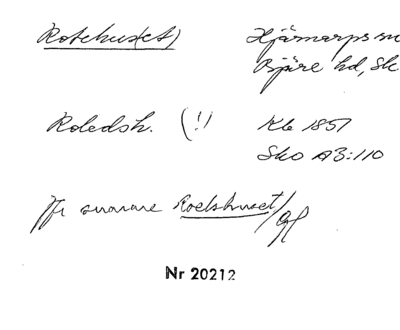 Rotehus(et) Hjärnarps sn
Bjäre hd, Sk
Roledsh. (!) Kb 1851
Sko A3:110
Jfr snarare Roelshuset/
Nr 20212